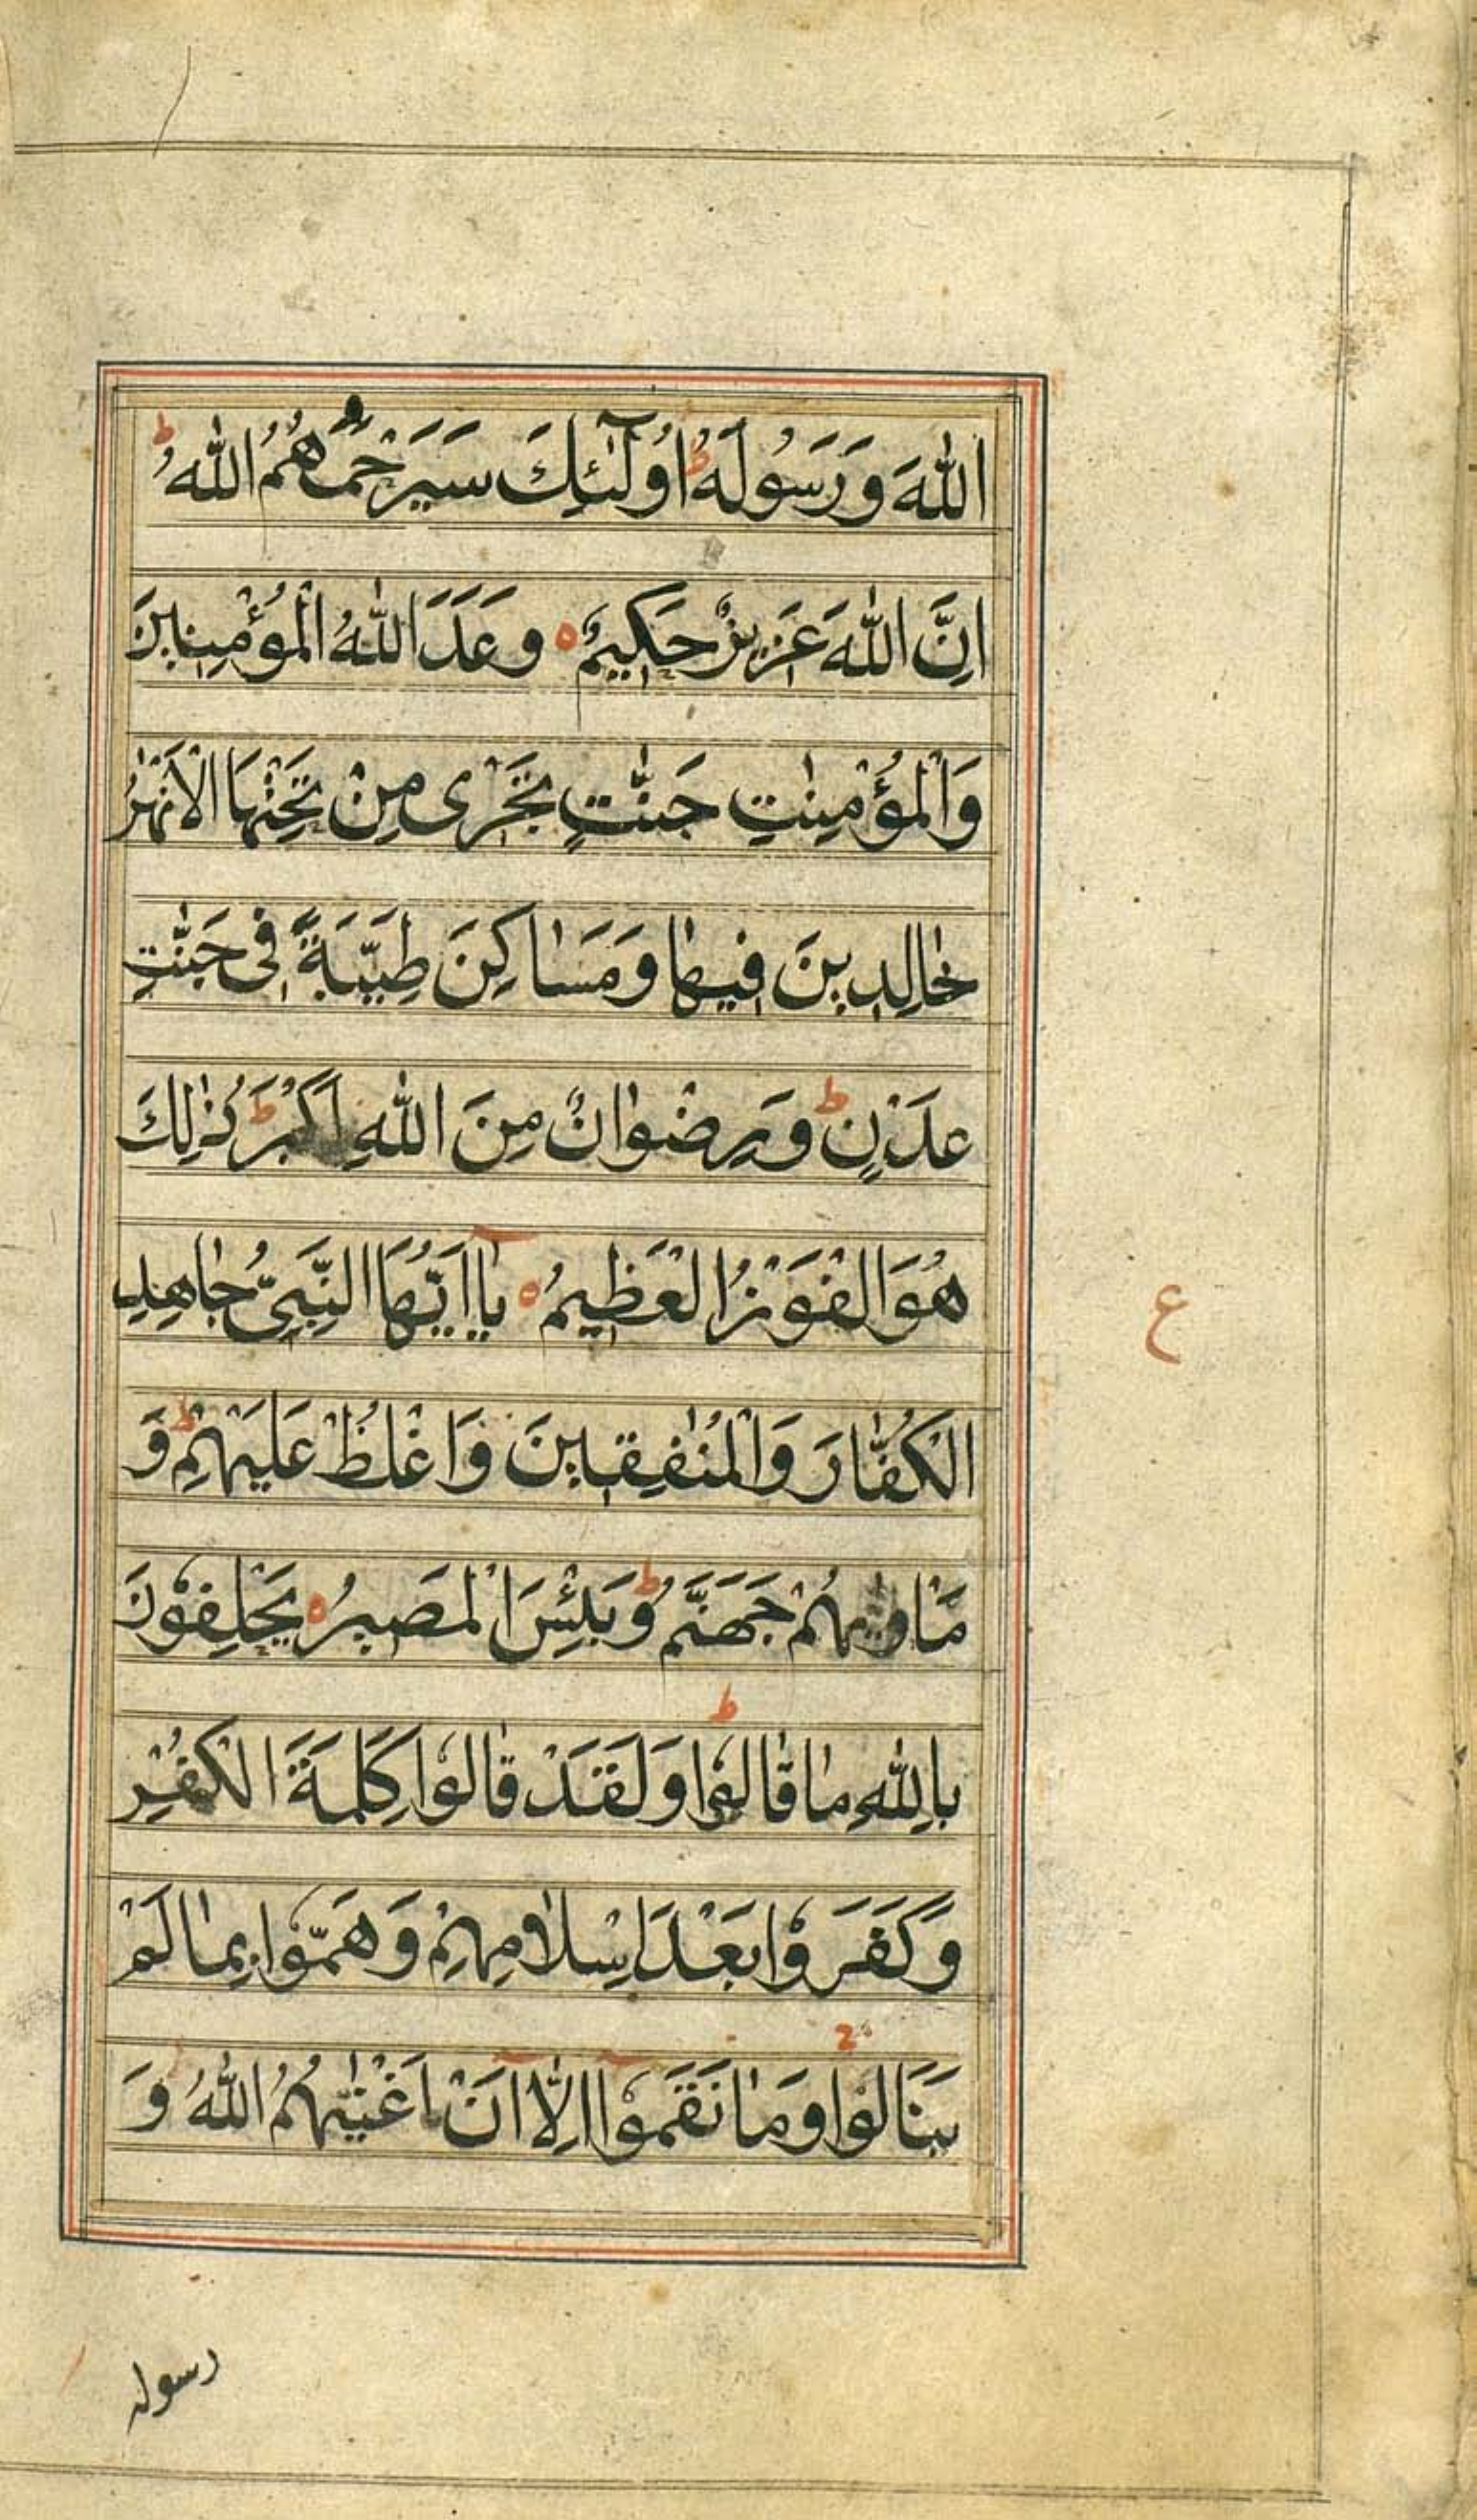 اللّٰهَ وَرَسُولَهُ ط اُولٰٓئِكَ سَيَرْحَمُهُمُ اللّٰهُ ط
اِنَّ اللّٰهَ عَزِيزٌ حَكِيمٌ ه وَعَدَ اللّٰهُ الْمُؤْمِنِينَ
وَالْمُؤْمِنٰتِ جَنّٰتٍ تَجْرٰى مِنْ تَحْتِهَا الْاَنْهٰرُ
خٰالِدِينَ فِيهٰا وَمَسٰاكِنَ طَيِّبَةً فِى جَنّٰتِ
عَدْنٍ ط وَرِضْوٰانٌ مِنَ اللّٰهِ اَكْبَرُ ط ذٰلِكَ
هُوَ الْفَوْزُ الْعَظِيمُ ه يٰٓا اَيُّهَا النَّبِىُّ جٰاهِدِ
الْكُفّٰارَ وَالْمُنٰفِقِينَ وَاغْلُظْ عَلَيْهِمْ ط وَ
مَاْوٰيهُمْ جَهَنَّمُ ط وَبِئْسَ الْمَصِيرُ ه يَحْلِفُونَ
بِاللّٰهِ مٰا قٰالُوا ط وَلَقَدْ قٰالُوا كَلِمَةَ الْكُفْرِ
وَكَفَرُوا بَعْدَ اِسْلٰامِهِمْ وَهَمُّوا بِمٰا لَمْ
يَنَالُوا ج وَمٰا نَقَمُوٓا اِلّٰٓا اَنْ اَغْنٰيهُمُ اللّٰهُ وَ
ع
رسوله